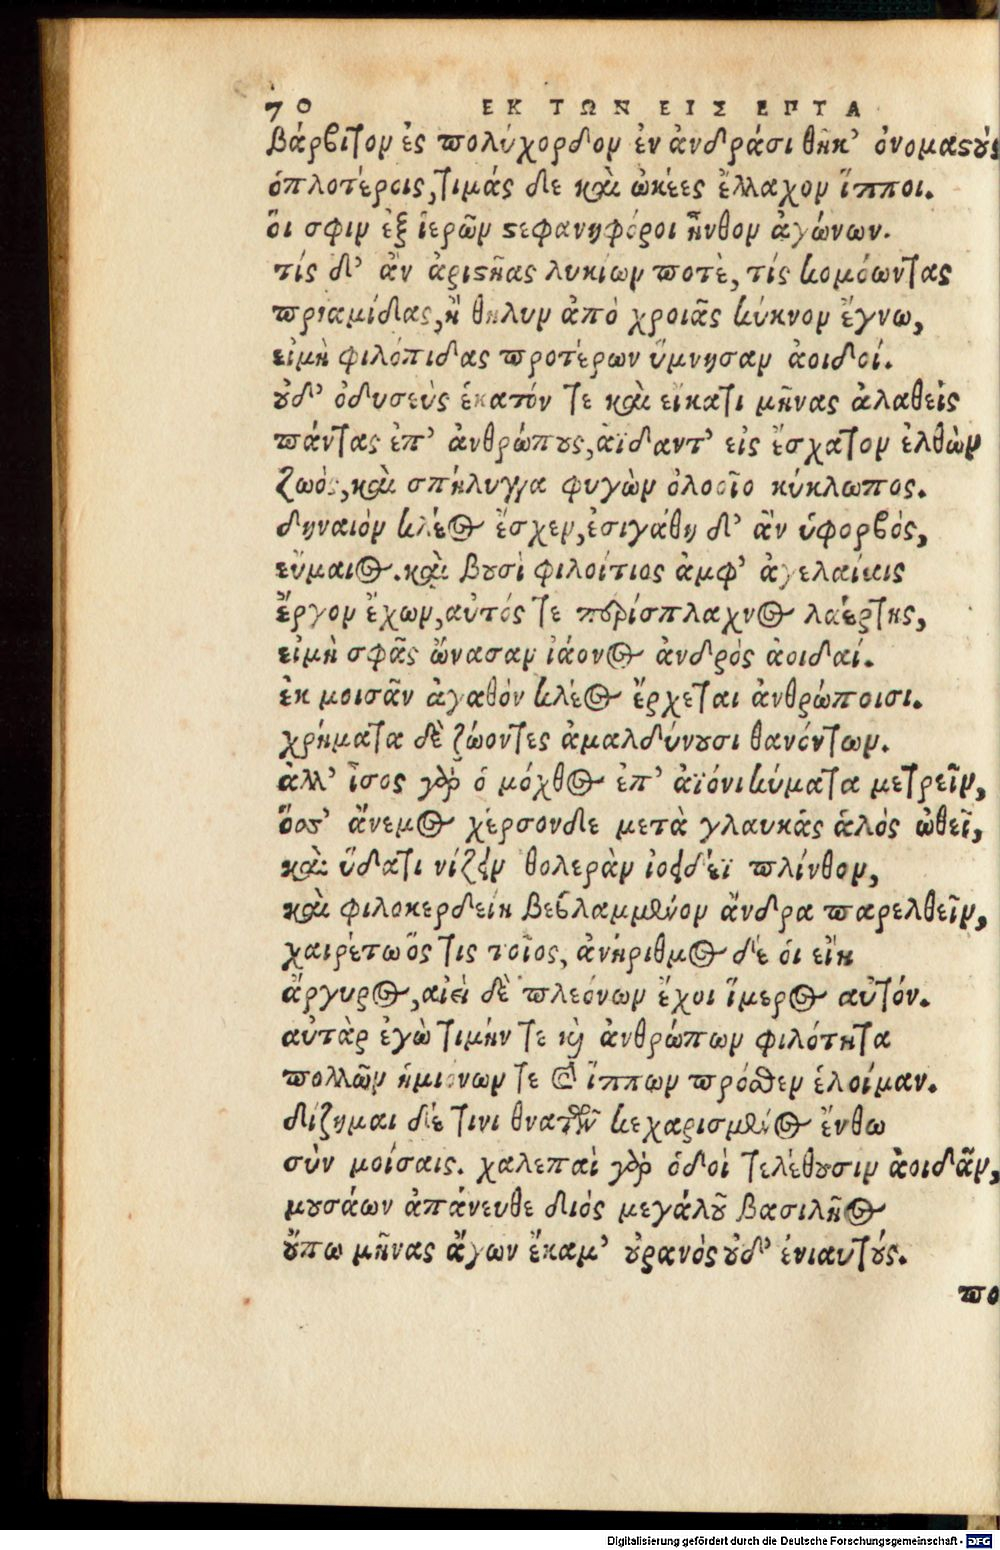 70 ΕΚ ΤΩΝ ΕΙΣ ΕΠΤΑ
βάρβιτον ἐς πολύχορδον ἐν ἀνδράσι θῆκ' ὀνομαςοὺς
ὁπλοτέροις, τιμάς δε καὶ ὠκέες ἔλλαχον ἵπποι.
ὅι σφιν ἐξ ἱερῶν ςεφανηφόροι ἦνθον ἀγώνων.
τίς δ' ἀν ἀριςῆας λυκίων ποτὲ, τίς κομόωντας
πριαμίδας, ἢ θηλυν ἀπὸ χροιᾶς κύκνον ἔγνω,
εἰμὴ φιλόπιδας προτέρων ὕμνησαν ἀοιδοί.
οὐδ' ὀδυσεὺς ἑκατόν τε καὶ εἴκατι μῆνας ἀλαθεὶς
πάντας ἐπ' ἀνθρώπους, ἀϊδαντ' εἰς ἔσχατον ἐλθὼν
ζωὸς, καὶ σπήλυγγα φυγὼν ὀλοοῖο κύκλωπος.
δηναιὸν κλέος ἔσχεν, ἐσιγάθη δ' ἂν ὑφορβὸς,
εὔμαιος. καὶ βουσὶ φιλοίτιος ἀμφ' ἀγελαίαις
ἔργον ἔχων, αὐτός τε περίσπλαχνος λαέρτης,
εἰμὴ σφᾶς ὤνασαν ἰάονος ἀνδρὸς ἀοιδαί.
ἐκ μοισᾶν ἀγαθόν κλέος ἔρχεται ἀνθρώποισι.
χρήματα δὲ ζώοντες ἀμαλδύνουσι θανόντων.
ἀλλ' ἶσος γὰρ ὁ μόχθος ἐπ' ἀϊόνι κύματα μετρεῖν,
ὅσσ' ἄνεμος χέρσονδε μετὰ γλαυκᾶς ἁλός ὠθεῖ,
καὶ ὕδατι νίζειν θολερὰν ἰοειδέϊ πλίνθον,
καὶ φιλοκερδείη βεβλαμμένον ἄνδρα παρελθεῖν,
χαιρέτω ὅς τις τοῖος, ἀνήριθμος δέ ὁι εἴη
ἄργυρος, αἰεὶ δὲ πλεόνων ἔχοι ἵμερος αὐτόν.
αὐτὰρ ἐγὼ τιμήν τε καὶ ἀνθρώπων φιλότητα
πολλῶν ἡμιόνων τε καὶ ἵππων πρόσθεν ἑλοίμαν.
δίζημαι δέ τινι θνατῶν κεχαρισμένος ἔνθω
σὺν μοίσαις. χαλεπαὶ γὰρ ὁδοὶ τελέθουσιν ἀοιδᾶν,
μουσάων ἀπάνευθε διός μεγάλου βασιλῆος
οὔπω μῆνας ἄγων ἔκαμ' οὐρανὸς οὐδ' ἐνιαυτούς.
πο
Digitalisierung gefördert durch die Deutsche Forschungsgemeinschaft - DFG